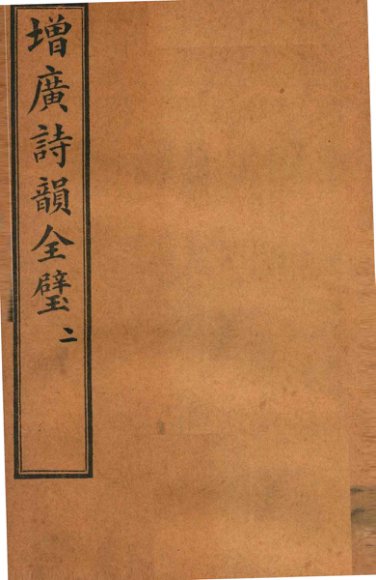 增廣詩韻全璧 二